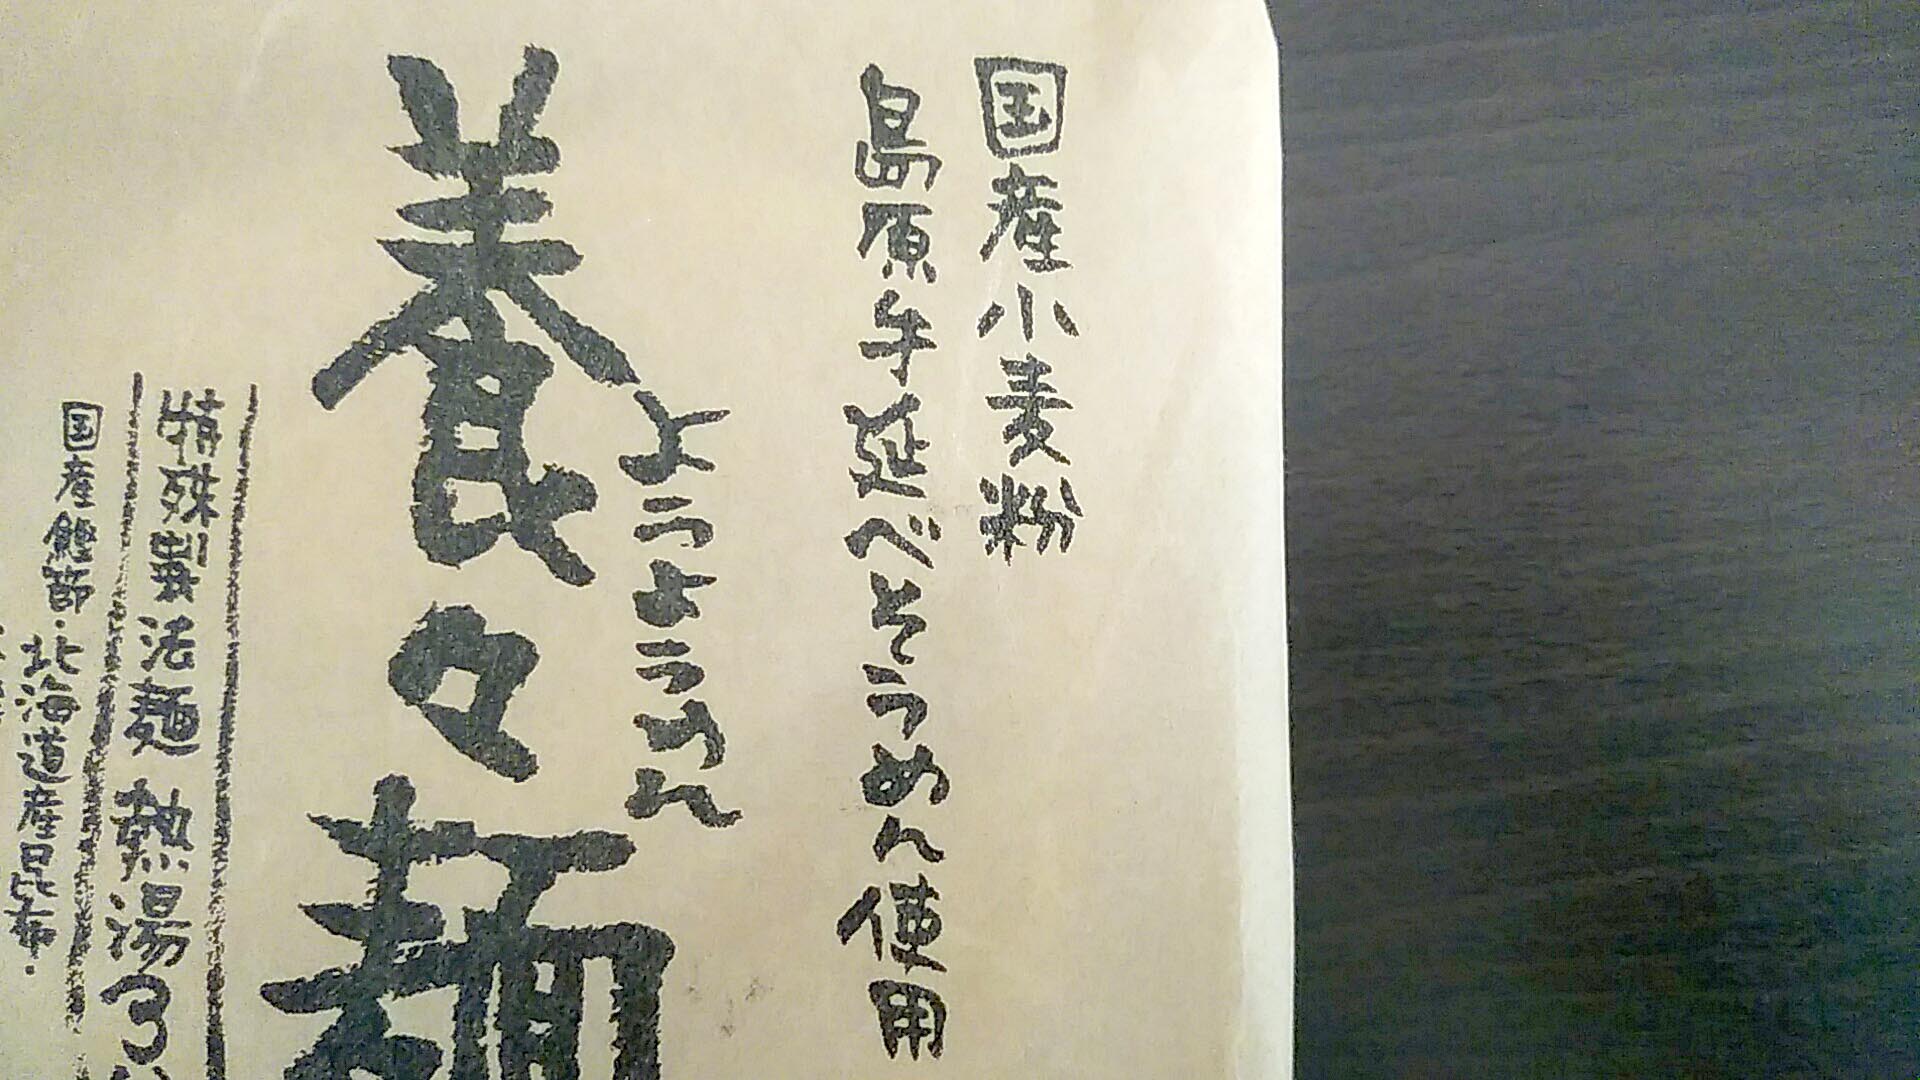 国産小麦粉
島原手延べそうめん使用
ようようめん
養々麺
特殊製法麺 熱湯3
国産鰹節・北海道産昆布・